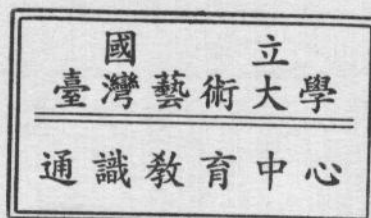 國立
臺灣藝術大學
通識教育中心